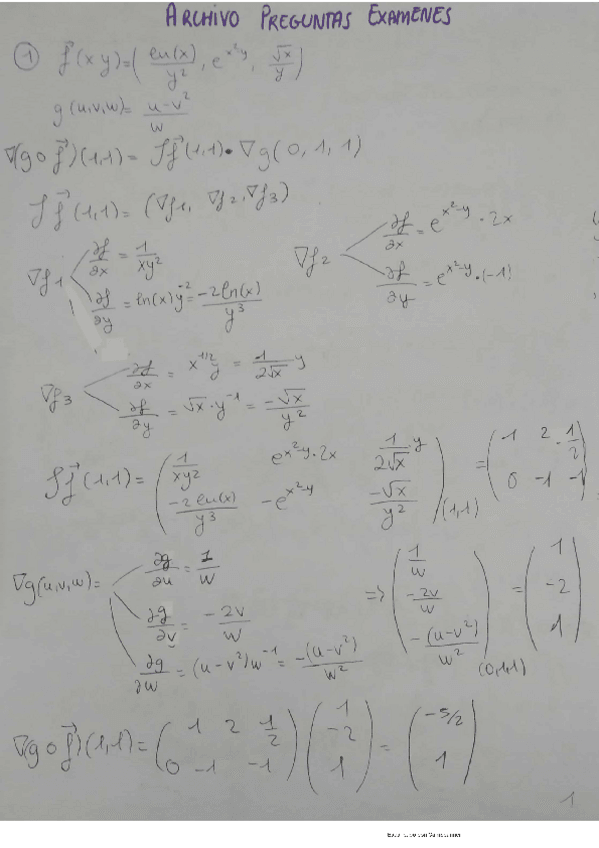 ARCHIVO PREGUNTAS EXAMENES
① f⃗(x y)=( ln(x)/y², e^(x²-y), √x/y )
g(u,v,w)= (u-v²)/w
∇(g∘f⃗)(1,1)= Jf⃗(1,1)•∇g(0,1,1)
Jf⃗(1,1)= (∇f1, ∇f2, ∇f3)
∇f1 ∂f/∂x = 1/(xy²)
∂f/∂y = ln(x)y⁻² = -2ln(x)/y³
∇f2 ∂f/∂x = e^(x²-y)·2x
∂f/∂y = e^(x²-y)·(-1)
∇f3 ∂f/∂x = x^(1/2)y = 1/(2√x) y
∂f/∂y = √x·y⁻¹ = -√x/y²
Jf⃗(1,1)= ( 1/(xy²) e^(x²-y)·2x 1/(2√x)·y = ( 1 2 1/2
-2ln(x)/y³ -e^(x²-y) -√x/y² )(1,1) 0 -1 -1 )
∇g(u,v,w)= ∂g/∂u = 1/w
∂g/∂v = -2v/w
∂g/∂w = (u-v²)w⁻¹ = -(u-v²)/w²
=> ( 1/w = ( 1
-2v/w -2
-(u-v²)/w² )(0,1,1) 1 )
∇(g∘f⃗)(1,1)= ( 1 2 1/2 ( 1 = ( -5/2
0 -1 -1 ) -2 1 )
1 )
1